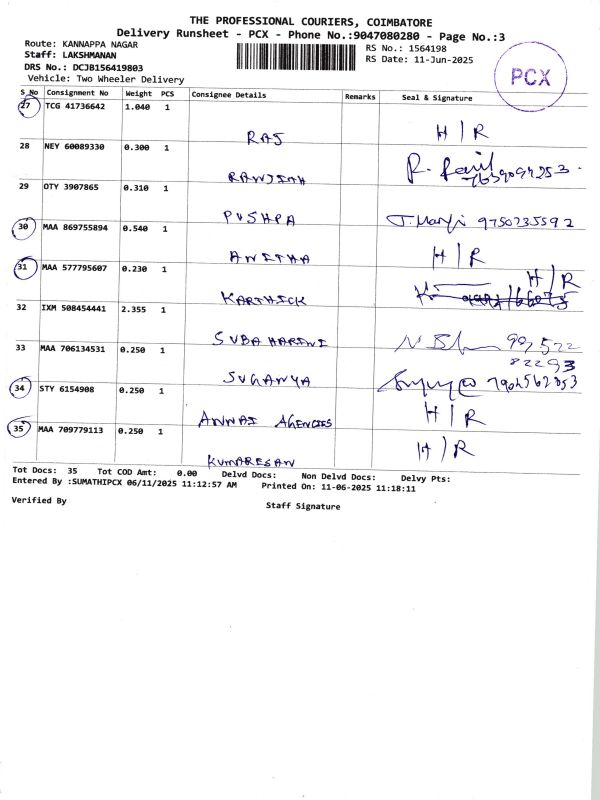 THE PROFESSIONAL COURIERS, COIMBATORE
Delivery Runsheet - PCX - Phone No.:9047080280 - Page No.:3
Route: KANNAPPA NAGAR
Staff: LAKSHMANAN
DRS No.: DCJB156419803
Vehicle: Two Wheeler Delivery
RS No.: 1564198
RS Date: 11-Jun-2025
PCX
S_No Consignment No Weight PCS Consignee Details Remarks Seal & Signature
27 TCG 41736642 1.040 1 RAJ H/R
28 NEY 60089330 0.300 1 RANJITH
29 OTY 3907865 0.310 1 PUSHPA 9750735592
30 MAA 869755894 0.540 1 ANITHA H/R
31 MAA 577795607 0.230 1 KARTHICK H/R
32 IXM 508454441 2.355 1 SUBA HARINI
33 MAA 706134531 0.250 1 SUGANYA
34 STY 6154908 0.250 1 ANNAI AGENCIES H/R
35 MAA 709779113 0.250 1 KUMARESAN H/R
Tot Docs: 35 Tot COD Amt: 0.00 Delvd Docs: Non Delvd Docs: Delvy Pts:
Entered By :SUMATHIPCX 06/11/2025 11:12:57 AM Printed On: 11-06-2025 11:18:11
Verified By
Staff Signature